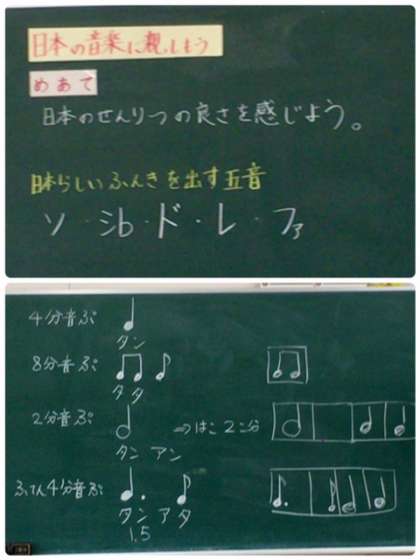 日本の音楽に親しもう
めあて
日本のせんりつの良さを感じよう。
日本らしいふんきを出す五音
ソ・シb・ド・レ・ファ
4分音ぷ
タン
8分音ぷ
タタ
2分音ぷ ⇒はこ2こ分
タン アン
ふてん4分音ぷ
タンア タ
1.5